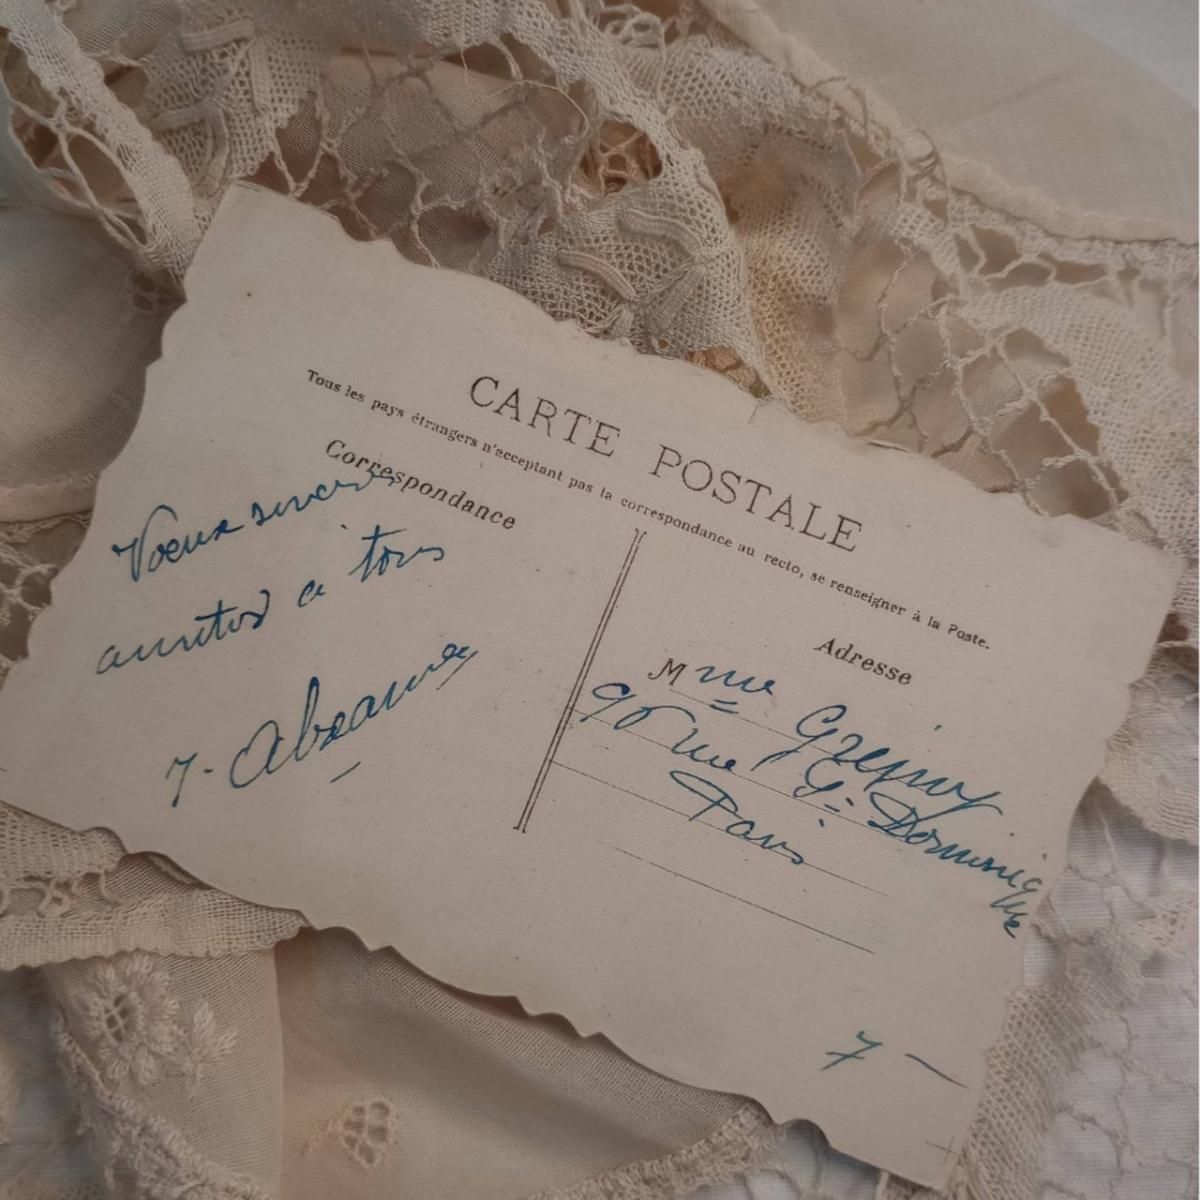 CARTE POSTALE
Tous les pays étrangers n'acceptant pas la correspondance au recto, se renseigner à la Poste.
Correspondance
Voeux sincères
amitiés à tous
Adresse
Mme
rue St Dominique
Paris
7 —